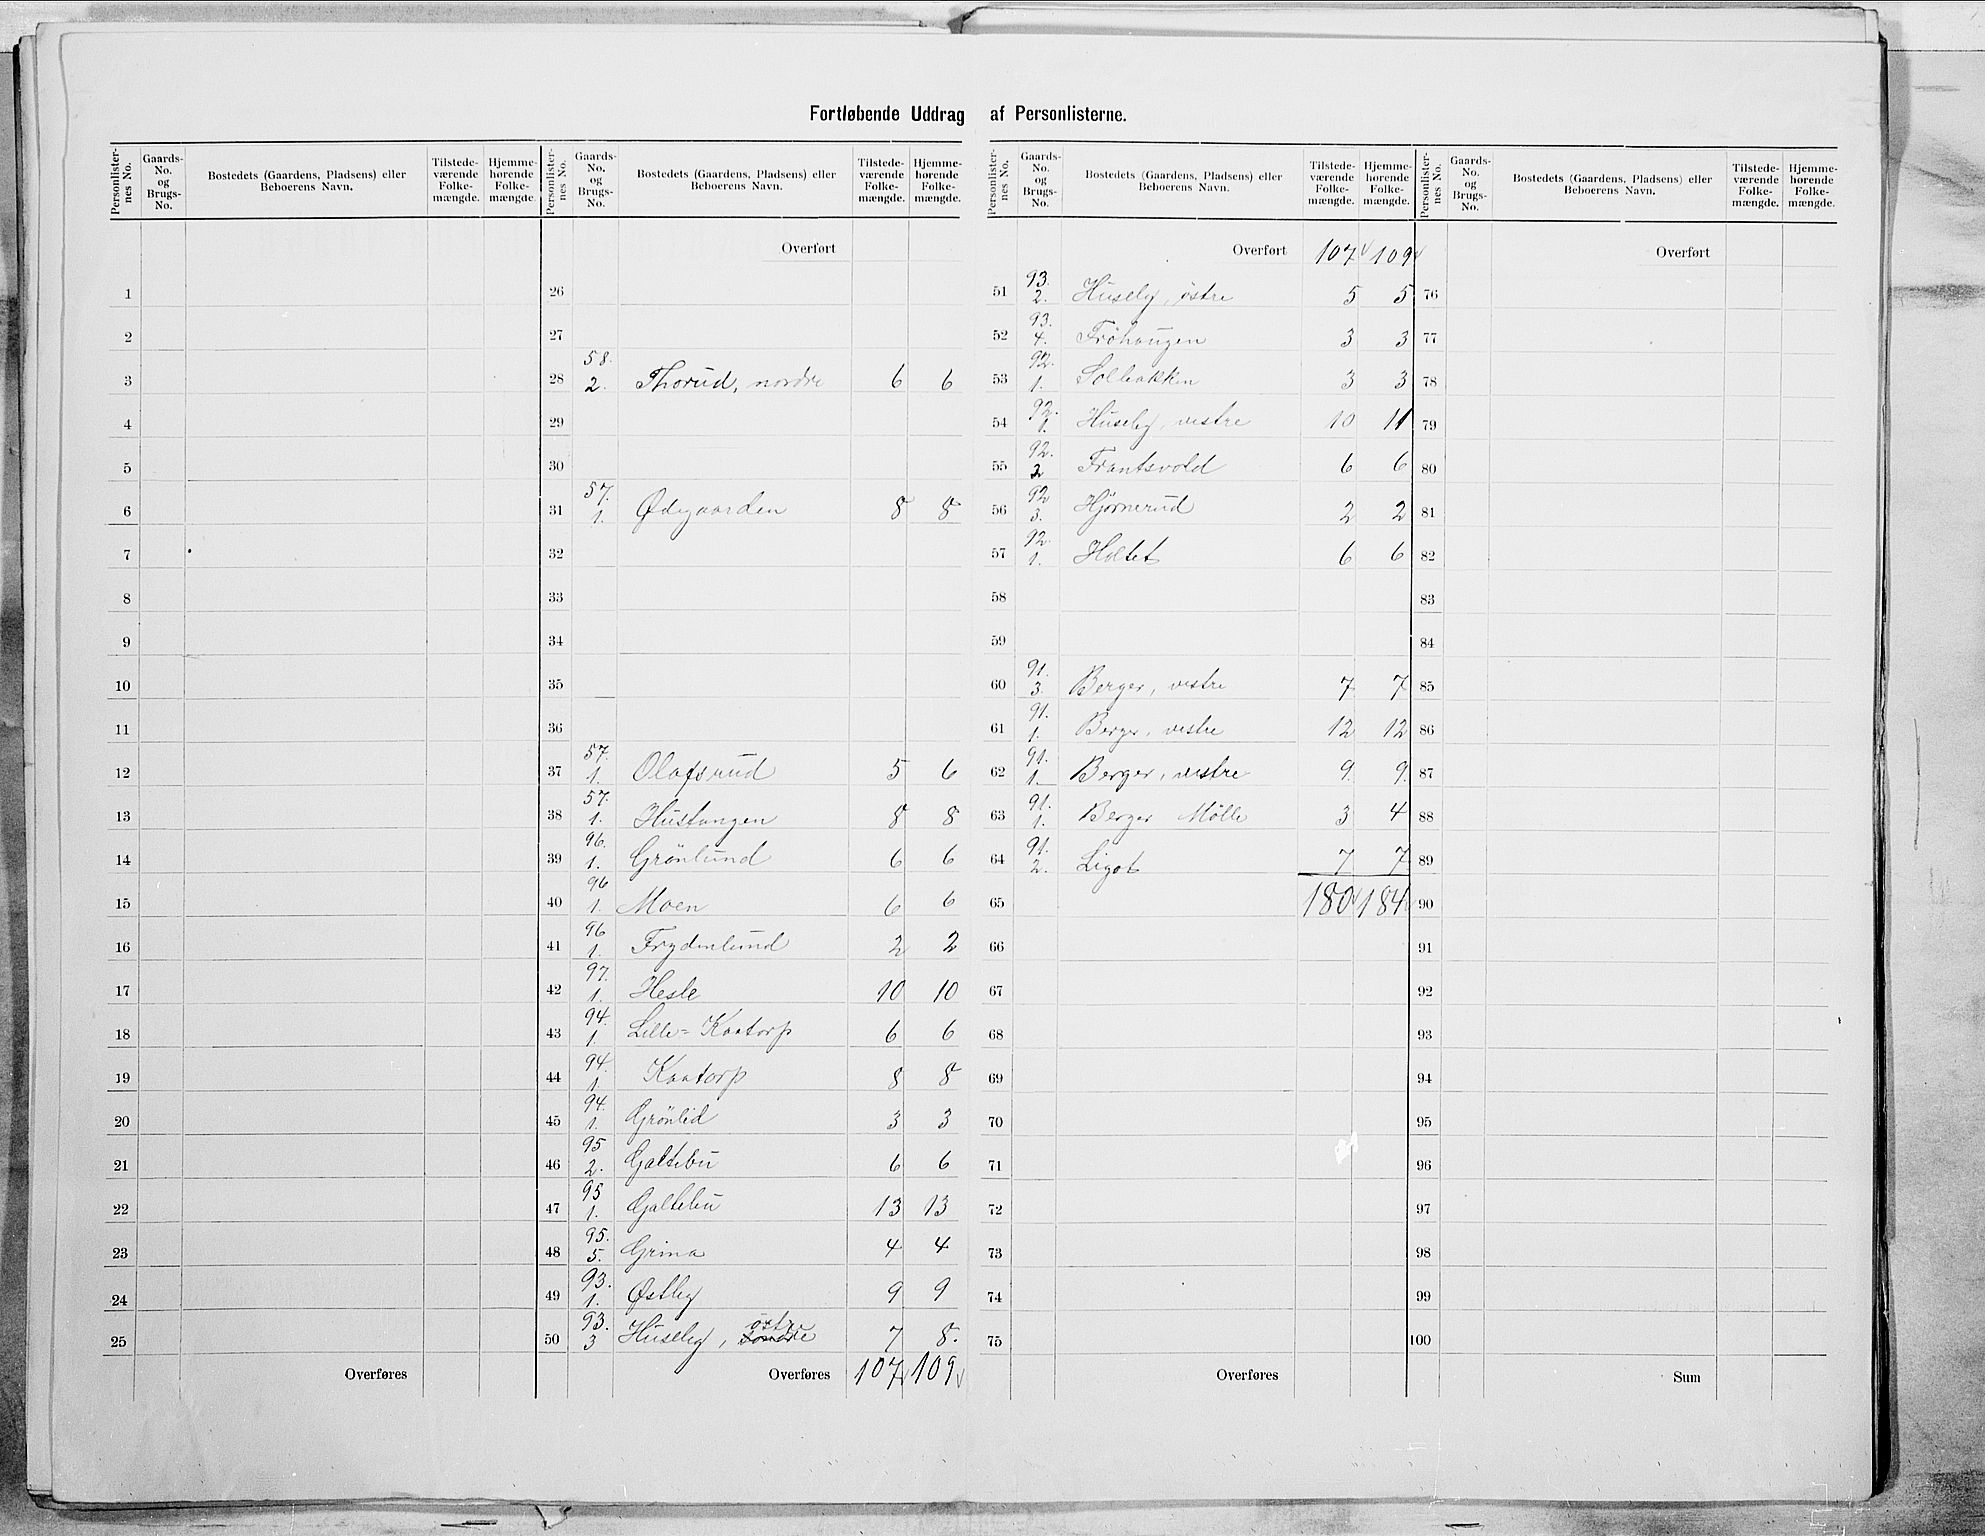 Fortløbende Uddrag af Personlisterne.
Personlister- nes No. | Gaards- No. og Brugs- No. | Bostedets (Gaardens, Pladsens) eller Beboerens Navn. | Tilstede- værende Folke- mængde. | Hjemme- hørende Folke- mængde.
1
2
3
4
5
6
7
8
9
10
11
12
13
14
15
16
17
18
19
20
21
22
23
24
25
Overføres
Personlister- nes No. | Gaards- No. og Brugs- No. | Bostedets (Gaardens, Pladsens) eller Beboerens Navn. | Tilstede- værende Folke- mængde. | Hjemme- hørende Folke- mængde.
Overført
26
27
28 58. 2. Thorud, nordre 6 6
29
30
31 57. 1. Ødegaarden 8 8
32
33
34
35
36
37 57. 1. Olafsrud 5 6
38 57. 1. Hustangen 8 8
39 96. 1. Grönlund 6 6
40 96 1. Moen 6 6
41 96 1. Frydenlund 2 2
42 97. 1. Hesle 10 10
43 94. 1. Lille=Kaatorp 6 6
44 94. 1. Kaatorp 8 8
45 94. 1. Grönlid 3 3
46 95 2. Galtebu 6 6
47 95 1. Galtebu 13 13
48 95. 5. Grina 4 4
49 93. 1. Østby 9 9
50 93. 3 Huseby, söndre östre 7 8.
Overføres 107 109
Personlister- nes No. | Gaards- No. og Brugs- No. | Bostedets (Gaardens, Pladsens) eller Beboerens Navn. | Tilstede- værende Folke- mængde. | Hjemme- hørende Folke- mængde.
Overført 107 109
51 93. 2. Huseby, östre 5 5
52 93. 4. Fröhaugen 3 3
53 92. 1. Solbakken 3 3
54 92. 1. Huseby, vestre 10 11
55 92. 2 Frantsvold 6 6
56 92 3. Hjørnerud 2 2
57 92. 1. Holtet 6 6
58
59
60 91. 3. Berger, vestre 7 7
61 91. 1. Berger, vestre 12 12
62 91. 1. Berger, vestre 9 9
63 91. 1. Berger Mölle 3 4
64 91. 2. Ligot 7 7
65 180 184
66
67
68
69
70
71
72
73
74
75
Overføres
Personlister- nes No. | Gaards- No. og Brugs- No. | Bostedets (Gaardens, Pladsens) eller Beboerens Navn. | Tilstede- værende Folke- mængde. | Hjemme- hørende Folke- mængde.
Overført
76
77
78
79
80
81
82
83
84
85
86
87
88
89
90
91
92
93
94
95
96
97
98
99
100
Sum